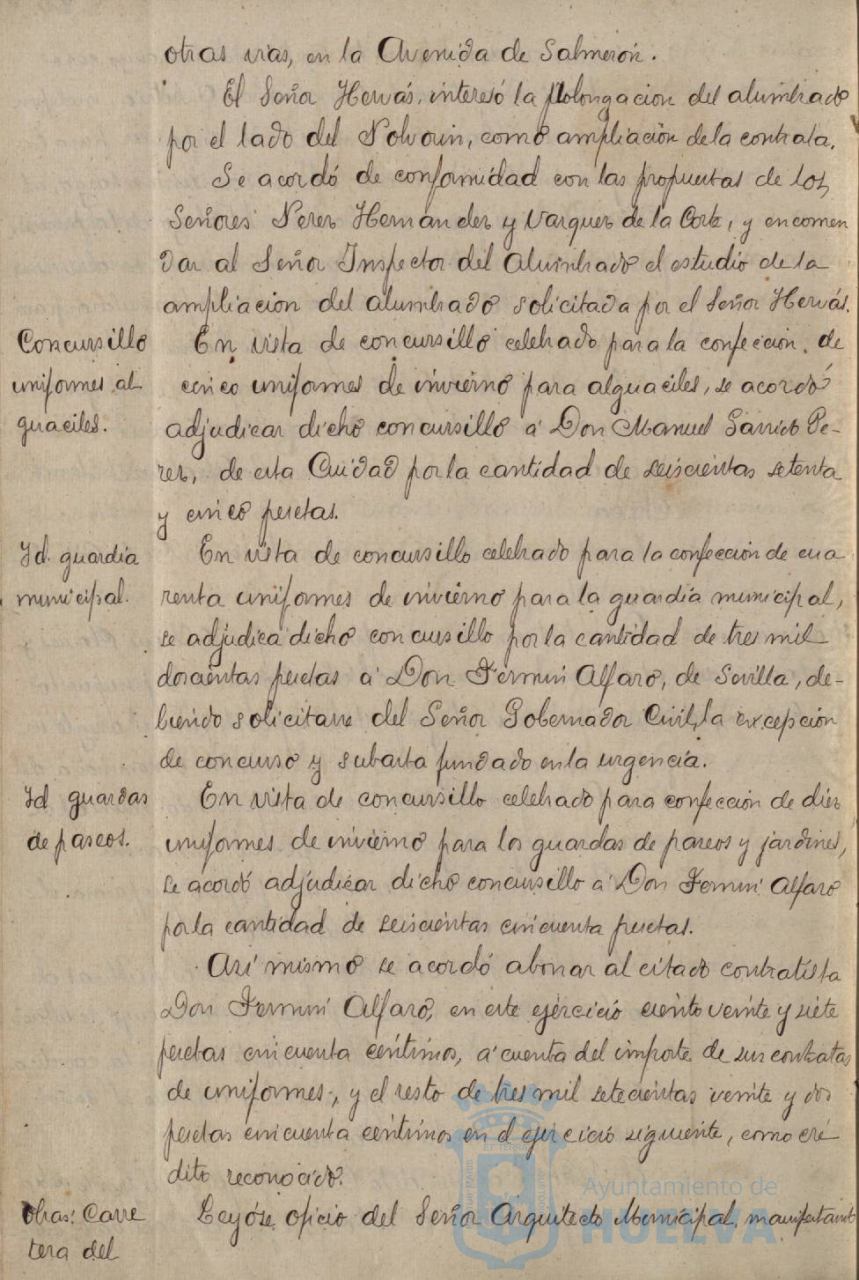 otras vias, en la Avenida de Salmerón.
El Señor Hervás, interesó la prolongacion del alumbrado
por el lado del Polvorin, como ampliación de la contrata.
Se acordó de conformidad con las propuestas de los
Señores Perez Hernandez y Vazquez de la Corte, y encomen
dar al Señor Inspector del Alumbrado el estudio de la
ampliacion del alumbrado solicitada por el Señor Hervás.
Concursillo
uniformes al
guaciles.
En vista de concursillo celebrado para la confección de
cinco uniformes de invierno para alguaciles, se acordó
adjudicar dicho concursillo á Don Manuel Garrido Pe-
rez, de esta Ciudad por la cantidad de seiscientas setenta
y cinco pesetas.
Id. guardia
municipal.
En vista de concursillo celebrado para la confección de cua
renta uniformes de invierno para la guardia municipal,
se adjudica dicho concursillo por la cantidad de tres mil
doscientas pesetas á Don Fermin Alfaro, de Sevilla, de-
biendo solicitarse del Señor Gobernador Civil, la excepción
de concurso y subasta fundado en la urgencia.
Id guardas
de paseos.
En vista de concursillo celebrado para confección de diez
uniformes de invierno para los guardas de paseos y jardines,
se acordó adjudicar dicho concursillo á Don Fermin Alfaro
por la cantidad de seiscientas cincuenta pesetas.
Asi mismo se acordó abonar al citado contratista
Don Fermin Alfaro, en este ejercicio ciento veinte y siete
pesetas cincuenta céntimos, á cuenta del importe de sus contratas
de uniformes, y el resto de tres mil setecientas veinte y dos
pesetas cincuenta céntimos en el ejercicio siguiente, como cré
dito reconocido.
Obras: Carre
tera del
Leyóse oficio del Señor Arquitecto Municipal, manifestando
Ayuntamiento de
HUELVA